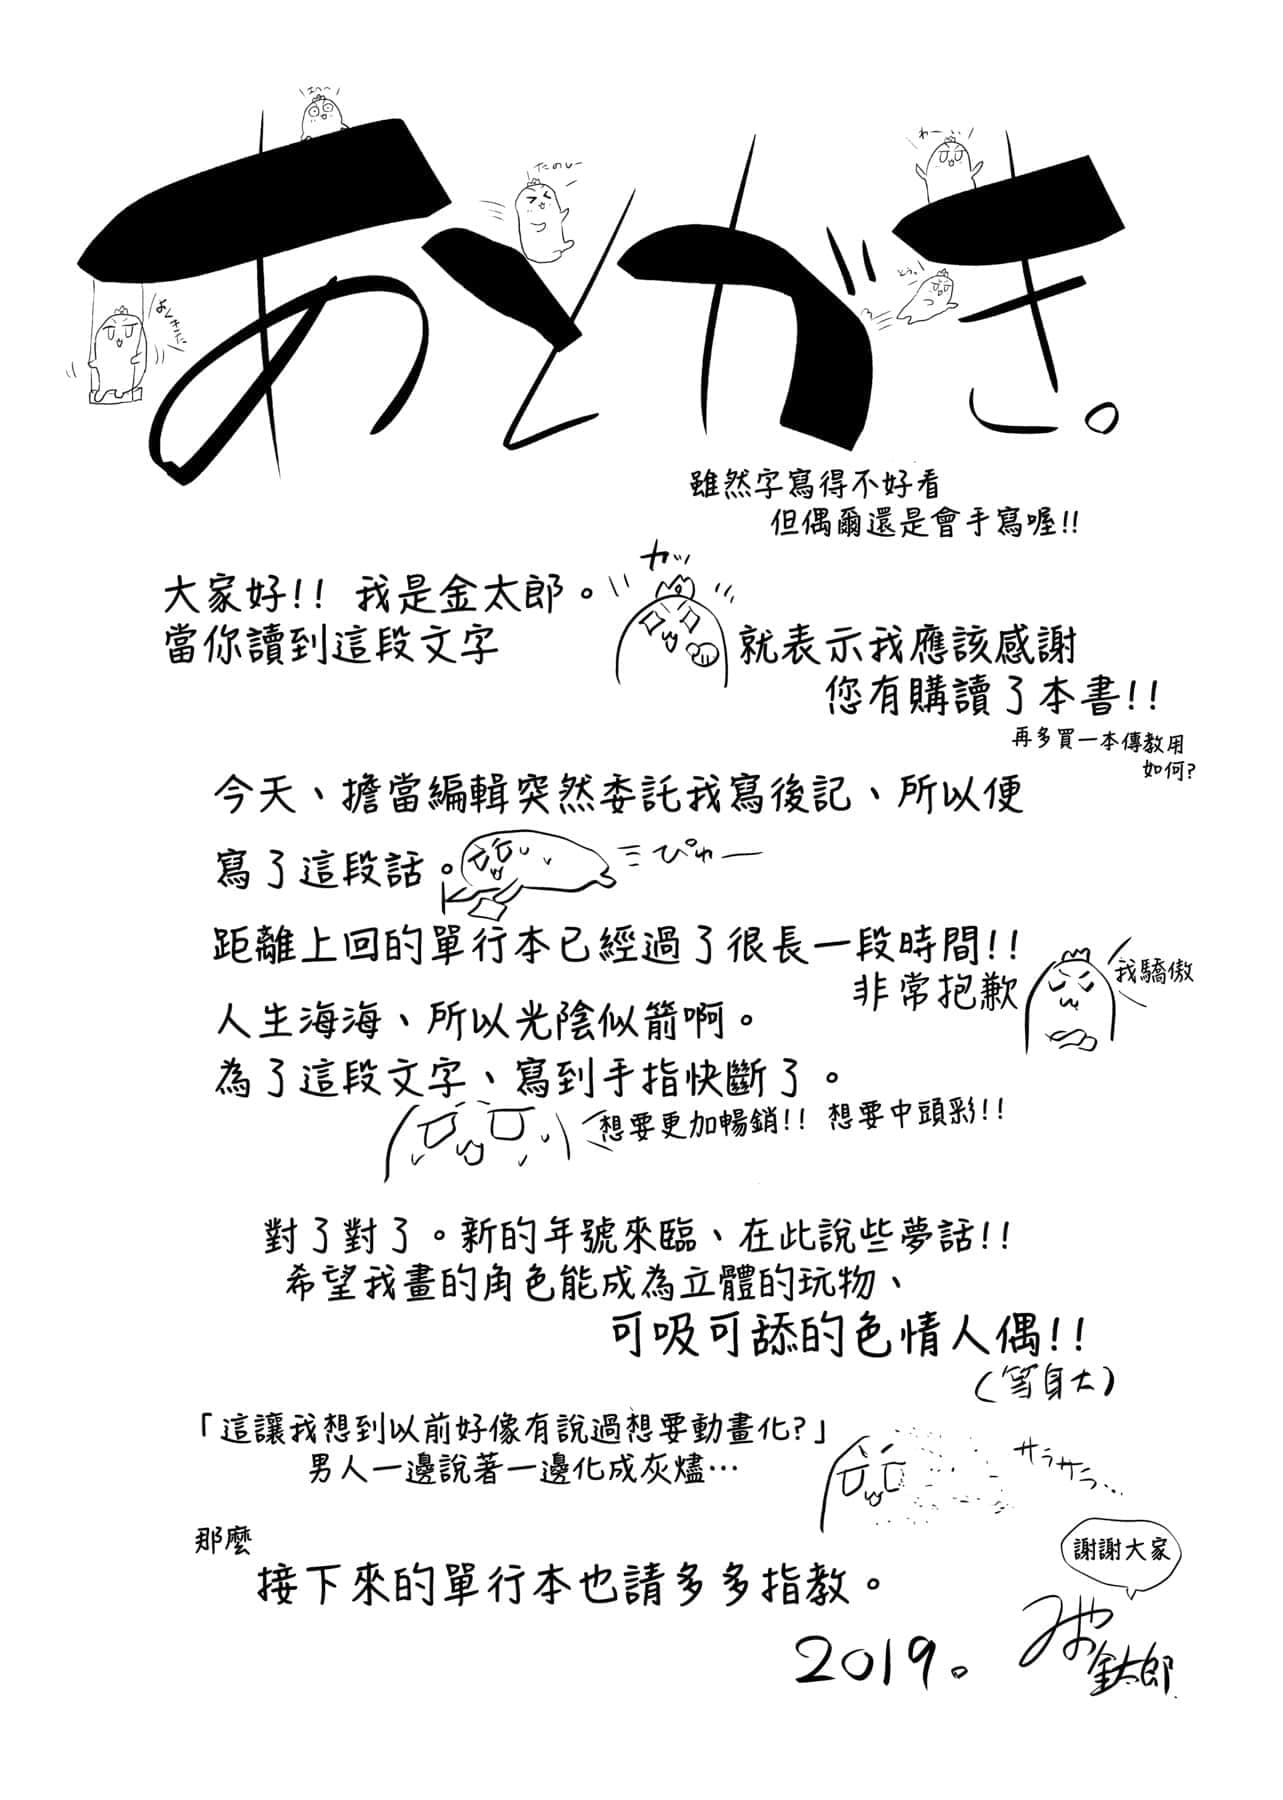 えへへ
たのしー
わーい
とぅ
あときだ
あとがき。
雖然字寫得不好看
但偶爾還是會手寫喔!!
カッ
大家好!! 我是金太郎。
當你讀到這段文字
就表示我應該感謝
您有購讀了本書!!
再多買一本傳教用
如何?
今天、擔當編輯突然委託我寫後記、所以便
寫了這段話。
ぴゅー
距離上回的單行本已經過了很長一段時間!!
非常抱歉
我驕傲
人生海海、所以光陰似箭啊。
為了這段文字、寫到手指快斷了。
想要更加暢銷!! 想要中頭彩!!
對了對了。新的年號來臨、在此說些夢話!!
希望我畫的角色能成為立體的玩物、
可吸可舔的色情人偶!!
(等身大)
「這讓我想到以前好像有說過想要動畫化?」
男人一邊說著一邊化成灰燼…
サラサラ…
那麼
接下來的單行本也請多多指教。
謝謝大家
2019。
みお
金太郎